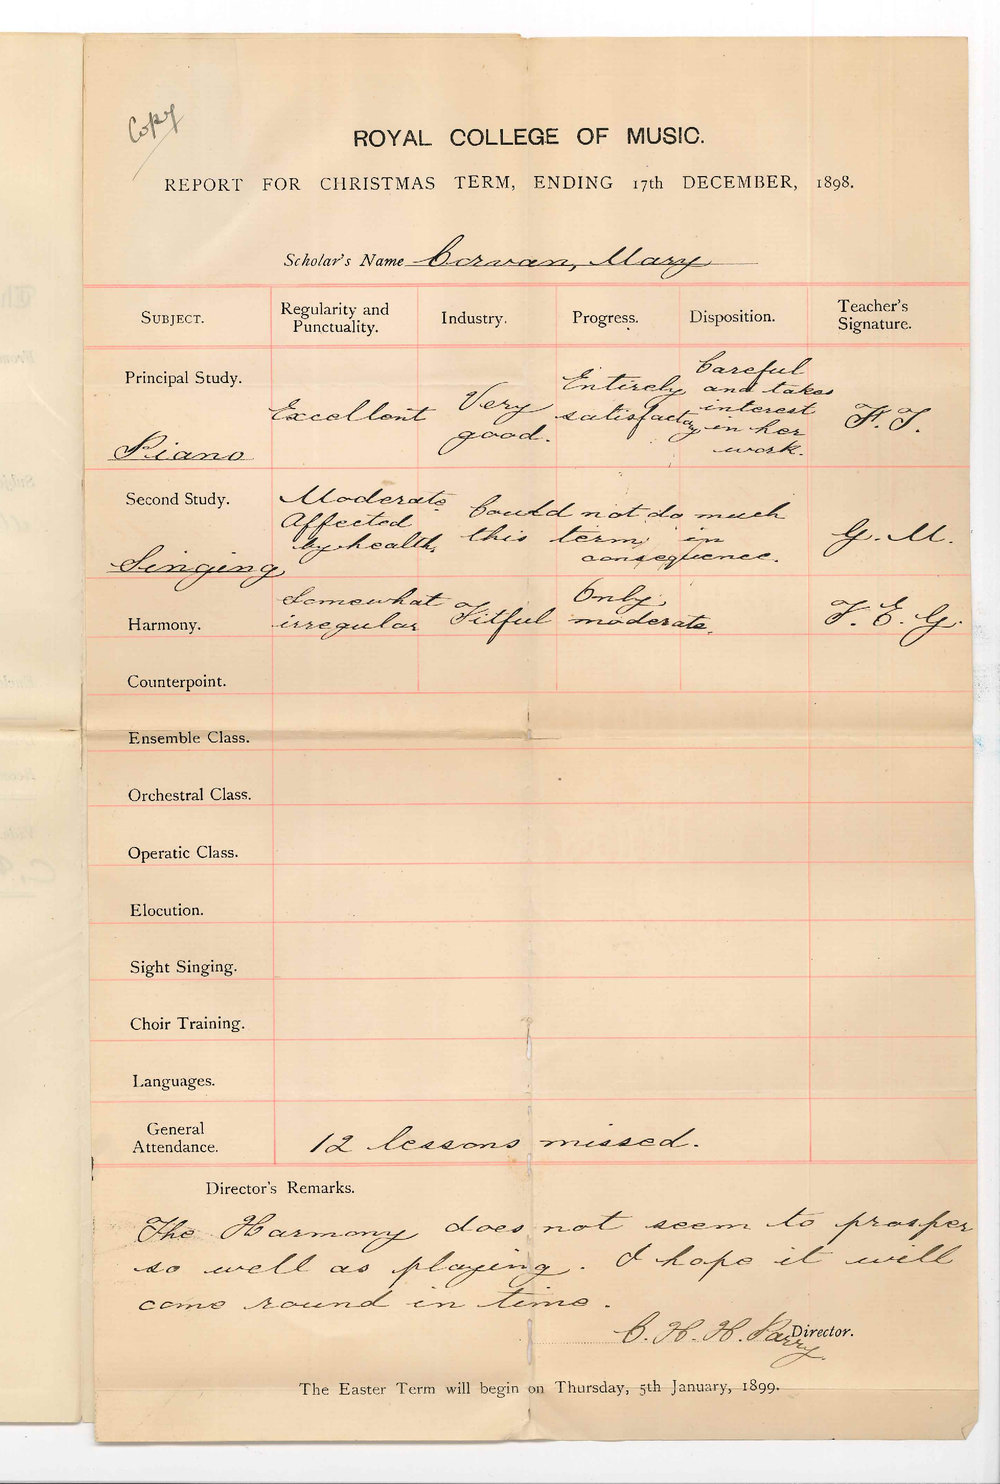 Copy
ROYAL COLLEGE OF MUSIC.
REPORT FOR CHRISTMAS TERM, ENDING 17th DECEMBER, 1898.
Scholar's Name Corvan, Mary
SUBJECT.
Regularity and
Punctuality.
Industry.
Progress.
Disposition.
Teacher's
Signature.
Principal Study.
Piano
Excellent
Very
good.
Entirely
satisfactory
Careful
and takes
interest
in her
work.
F. T.
Second Study.
Singing
Moderate.
Affected
by health.
Could not do much
this term in
consequence.
G. M.
Harmony.
Somewhat
irregular
Fitful
Only
moderate.
F. E. G.
Counterpoint.
Ensemble Class.
Orchestral Class.
Operatic Class.
Elocution.
Sight Singing.
Choir Training.
Languages.
General
Attendance.
12 lessons missed.
Director's Remarks.
The Harmony does not seem to prosper
so well as playing. I hope it will
come round in time.
C. H. H. Parry Director.
The Easter Term will begin on Thursday, 5th January, 1899.